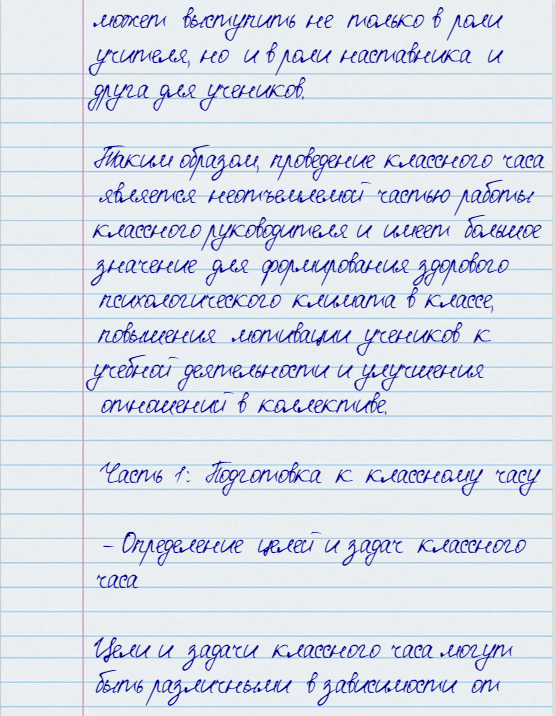 может выступить не только в роли
учителя, но и в роли наставника и
друга для учеников.
Таким образом, проведение классного часа
является неотъемлемой частью работы
классного руководителя и имеет большое
значение для формирования здорового
психологического климата в классе,
повышения мотивации учеников к
учебной деятельности и улучшения
отношений в коллективе.
Часть 1: Подготовка к классному часу
- Определение целей и задач классного
часа
Цели и задачи классного часа могут
быть различными в зависимости от